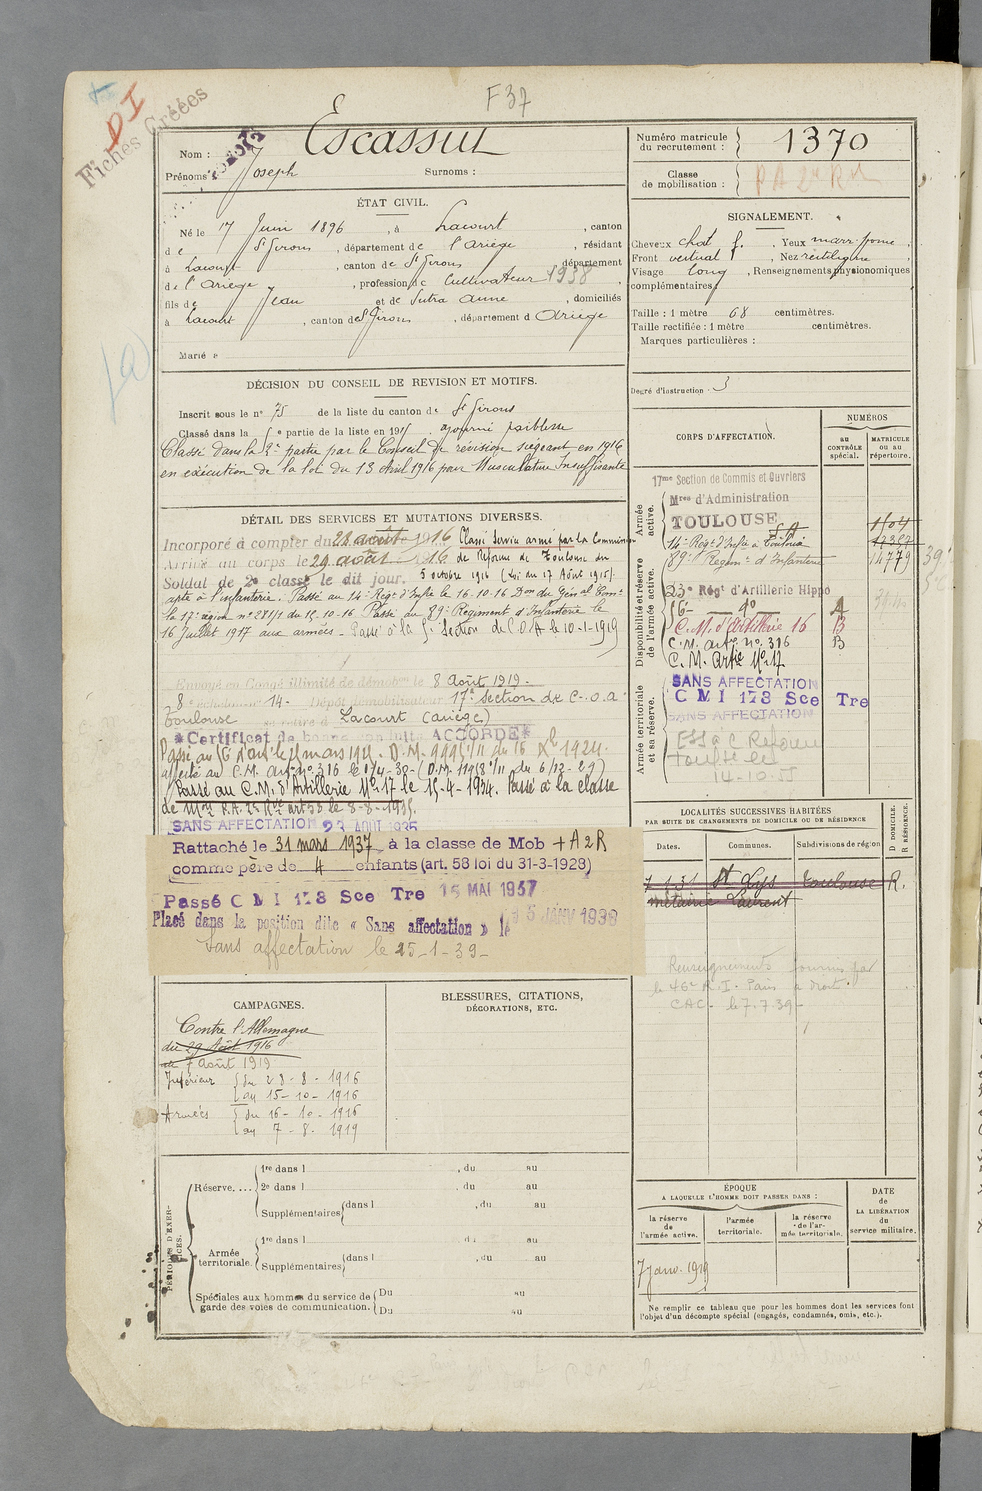 F37
DI
Fiches Créées
Nom : Escassut
Prénoms : Joseph Surnoms :
Numéro matricule du recrutement : 1370
Classe de mobilisation :
ÉTAT CIVIL.
Né le 17 Juin 1896, à Lacourt, canton
de St Girons, département de l'Ariège, résidant
à Lacourt, canton de St Girons, département
de l'Ariège, profession de Cultivateur 1938
fils de Jean et de Sutra Anne, domiciliés
à Lacourt, canton de St Girons, département d Ariège
Marié à
SIGNALEMENT.
Cheveux chat f., Yeux marr. jaune,
Front vertical, Nez rectiligne,
Visage long, Renseignements physionomiques
complémentaires
Taille : 1 mètre 68 centimètres.
Taille rectifiée : 1 mètre centimètres.
Marques particulières :
Degré d'instruction : 3
DÉCISION DU CONSEIL DE REVISION ET MOTIFS.
Inscrit sous le n° 75 de la liste du canton de St Girons
Classé dans la 5e partie de la liste en 1915. ajourné faiblesse
Classé dans la 2e partie par le Conseil de révision siégeant en 1916
en exécution de la loi du 13 Avril 1916 pour Musculature Insuffisante
DÉTAIL DES SERVICES ET MUTATIONS DIVERSES.
Incorporé à compter du 28 août 1916 Classé Service armé par la Commission
Arrivé au corps le 29 août 1916. de Réforme de Toulouse du
Soldat de 2e classe le dit jour. 5 octobre 1916 (Loi du 17 Août 1915).
apte à l'infanterie. Passé au 14e Rég. d'Infie le 16.10.16 Don du Génal Comt
la 17e région n° 281/1 du 15-10-16 Passé au 89e Régiment d'Infanterie le
16 Juillet 1917 aux armées - Passé à la 5e Section de C.O.A le 10-1-1919
Envoyé en Congé illimité de démobon le 8 Août 1919.
8e échelon n° 14. Dépôt démobilisateur 17e section de C.O.A
Toulouse se retire à Lacourt (Ariège)
*Certificat de bonne conduite ACCORDÉ*
affecté au C.M. Artie n° 316 le 1/4-30- (D.M. 11958 1/11 du 6/12-29)
Passé au C.M. d'Artillerie N° 17 le 15-4-1934. Passé à la classe
SANS AFFECTATION 23 AOUT 1935
Rattaché le 31 mars 1937 à la classe de Mob + A2R
comme père de 4 enfants (art. 58 loi du 31-3-1928)
Passé C M I 178 Sce Tre 15 MAI 1937
Placé dans la position dite « Sans affectation » le 15 JANV 1938
Sans affectation le 25-1-39-
CORPS D'AFFECTATION.
NUMÉROS
AU CONTRÔLE spécial.
MATRICULE ou au répertoire.
Armée active.
17me Section de Commis et Ouvriers
Mres d'Administration
TOULOUSE
14e Régt d'Infie à Toulouse
89e Régiment d'Infanterie 14779
Disponibilité et réserve de l'armée active.
23e Régt d'Artillerie Hippo
C.M. d'Artillerie 16 B
C.M. Artie n° 316 B
C.M. Artie N° 17
Armée territoriale et sa réserve.
SANS AFFECTATION
C M I 178 Sce Tre
SANS AFFECTATION
14-10-55
LOCALITÉS SUCCESSIVES HABITÉES
PAR SUITE DE CHANGEMENTS DE DOMICILE OU DE RÉSIDENCE
Dates. Communes. Subdivisions de région D DOMICILE. R RÉSIDENCE.
7-1-31 St Lys Toulouse R.
métairie Laurent
Renseignements fournis par
le 46e R.I. Paris a droit
CAC - le 7.7.39-
CAMPAGNES.
Contre l'Allemagne
du 29 Août 1916
au 7 août 1919
Intérieur du 28-8-1916
au 15-10-1916
Armées du 16-10-1916
au 7-8-1919
BLESSURES, CITATIONS,
DÉCORATIONS, ETC.
PÉRIODES D'EXERCICES.
Réserve. ... 1re dans l , du au
2e dans l , du au
Supplémentaires dans l , du au
Armée territoriale. 1re dans l , du au
Supplémentaires dans l , du au
Spéciales aux hommes du service de garde des voies de communication. Du au
Du au
ÉPOQUE
A LAQUELLE L'HOMME DOIT PASSER DANS :
la réserve de l'armée active.
l'armée territoriale.
la réserve de l'armée territoriale.
DATE de LA LIBÉRATION du service militaire.
7 janv. 1919
Ne remplir ce tableau que pour les hommes dont les services font
l'objet d'un décompte spécial (engagés, condamnés, omis, etc.).